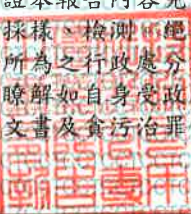 證本報告內容完
採樣、檢測，絕
所為之行政處分
瞭解如自身受政
文書及貪污治罪